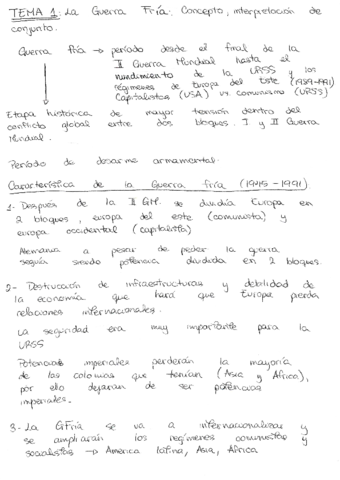 TEMA 1: La Guerra Fría: Concepto, interpretación de
conjunto.
Guerra fría → período desde el final de la
II Guerra Mundial hasta el
hundimiento de la URSS y los
régimenes de Europa del Este (1989-1991)
Capitalistas (USA) vs. comunismo (URSS)
Etapa histórica de mayor tensión dentro del
conflicto global entre dos bloques. I y II Guerra
Mundial.
Período de desarme armamental.
Característica de la Guerra fría (1945-1991)
1- Después de la II GM. se dividía Europa en
2 bloques, europa del este (comunista) y
europa occidental (capitalista)
Alemania a pesar de perder la guerra
seguía siendo potencia dividada en 2 bloques.
2- Destrucción de infraestructuras y debilidad de
la economía que hará que Europa pierda
relaciones internacionales.
La seguridad era muy importante para la
URSS
Potencias imperiales perderán la mayoría
de las colonias que tenían (Asia y África),
por ello dejaran de ser potencias
imperiales.
3- La GFría se va a internacionalizar y
se ampliarán los regímenes comunistas y
socialistas → America latina, Asia, África